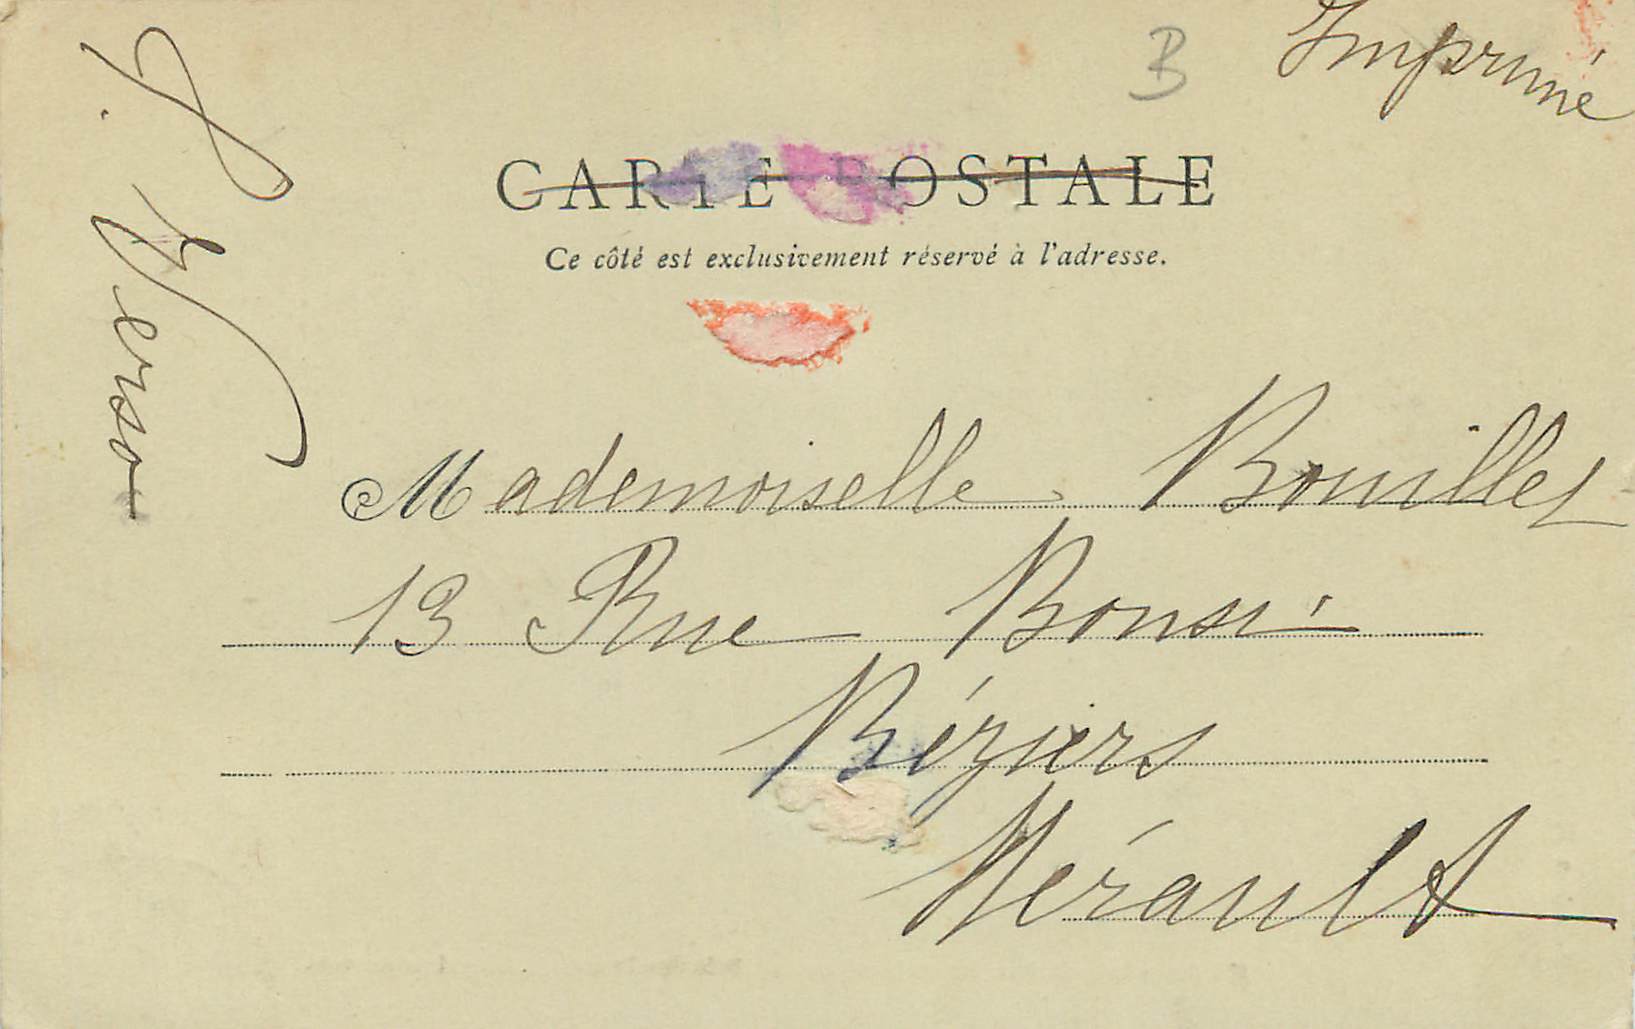 Imprimé
B
CARTE POSTALE
Ce côté est exclusivement réservé à l'adresse.
Mademoiselle Bouillet
13 Rue Bonsi
Béziers
Hérault
Verso